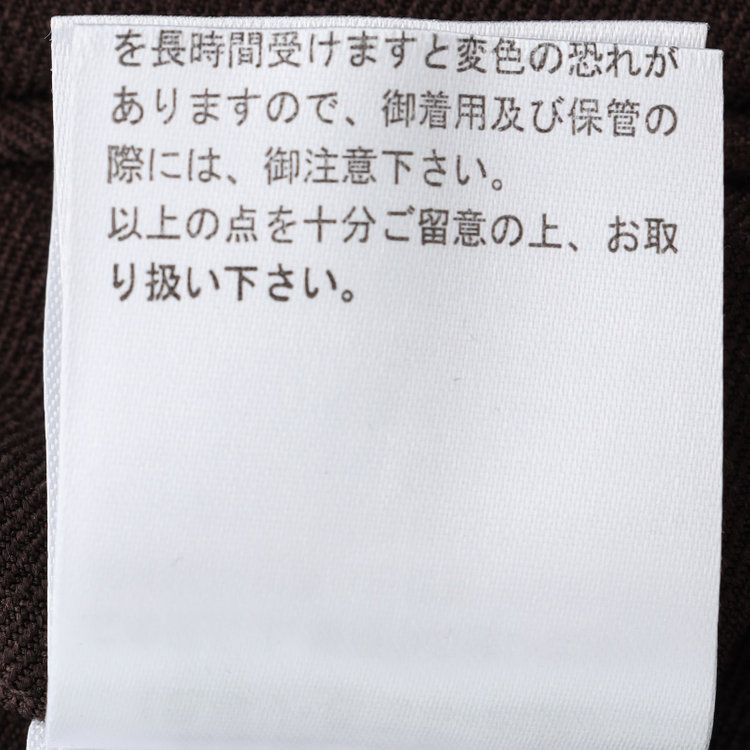 を長時間受けますと変色の恐れが
ありますので、御着用及び保管の
際には、御注意下さい。
以上の点を十分ご留意の上、お取
り扱い下さい。